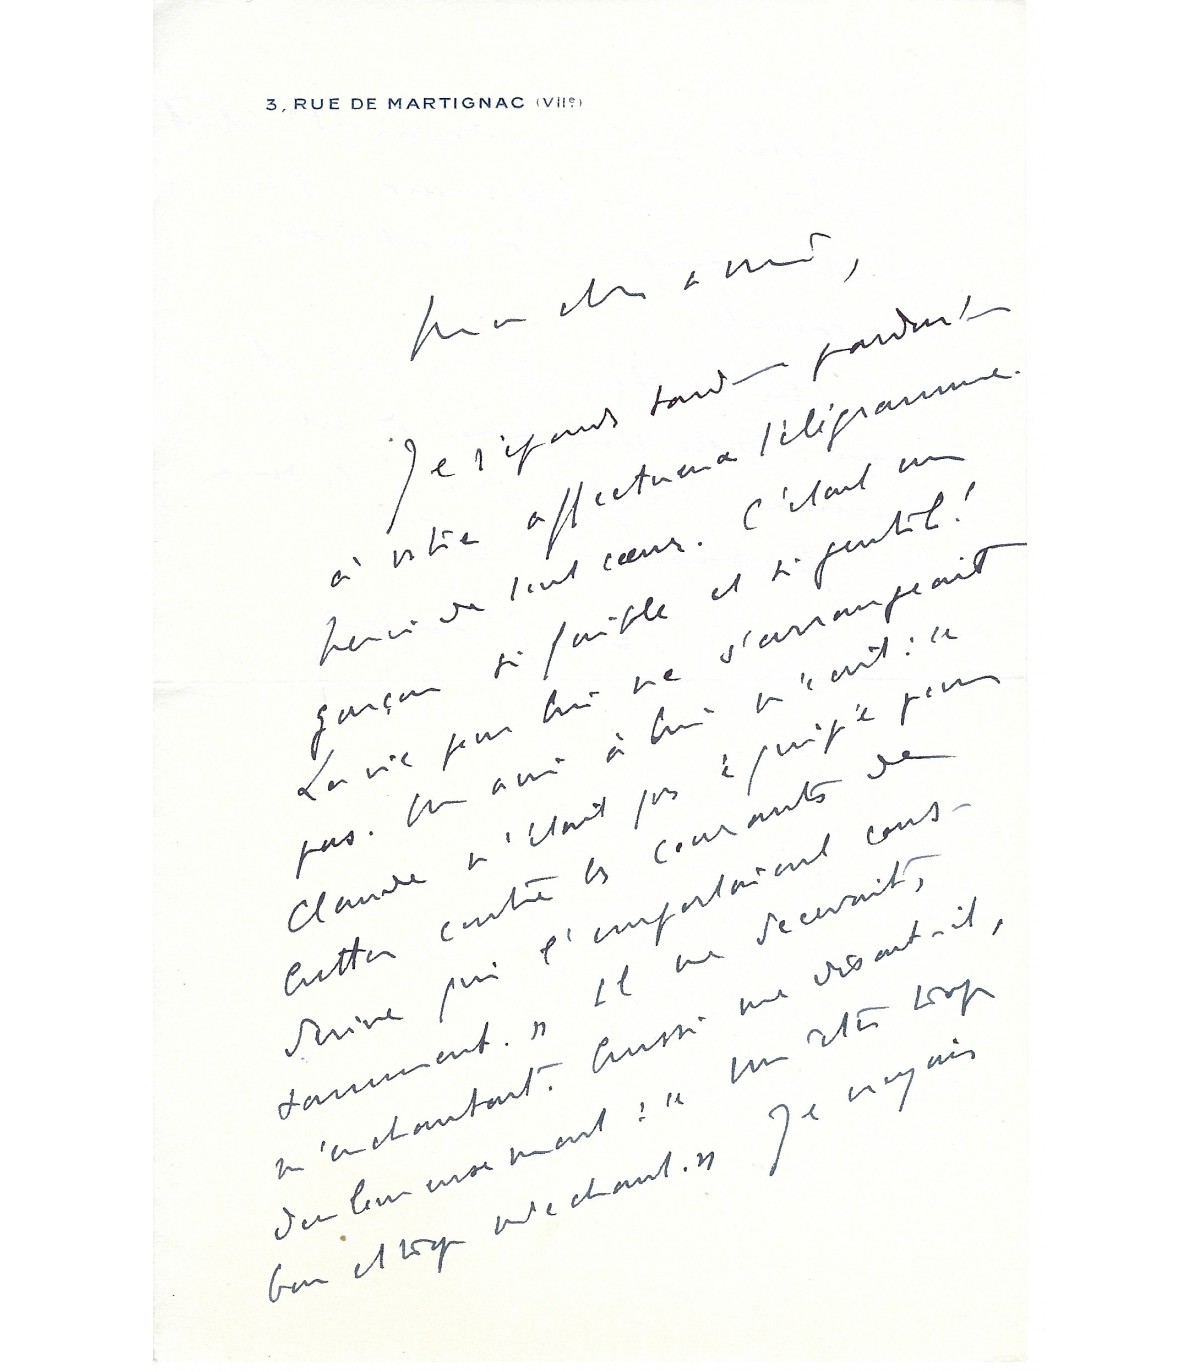 3, RUE DE MARTIGNAC (VIIe)
Mon cher ami,
Je réponds tard – pardon –
à votre affectueux télégramme.
Merci de tout cœur. C'était un
garçon si faible et si gentil!
La vie pour lui ne s'arrangeait
pas. Un ami à lui m'écrit : "
Claude n'était pas équipé pour
lutter contre les courants de
dérive qui l'emportaient cons-
tamment." Il me décevait,
m'enchantait. Aussi me disait-il,
douloureusement : " Vous êtes trop
bon et trop méchant." Je voyais